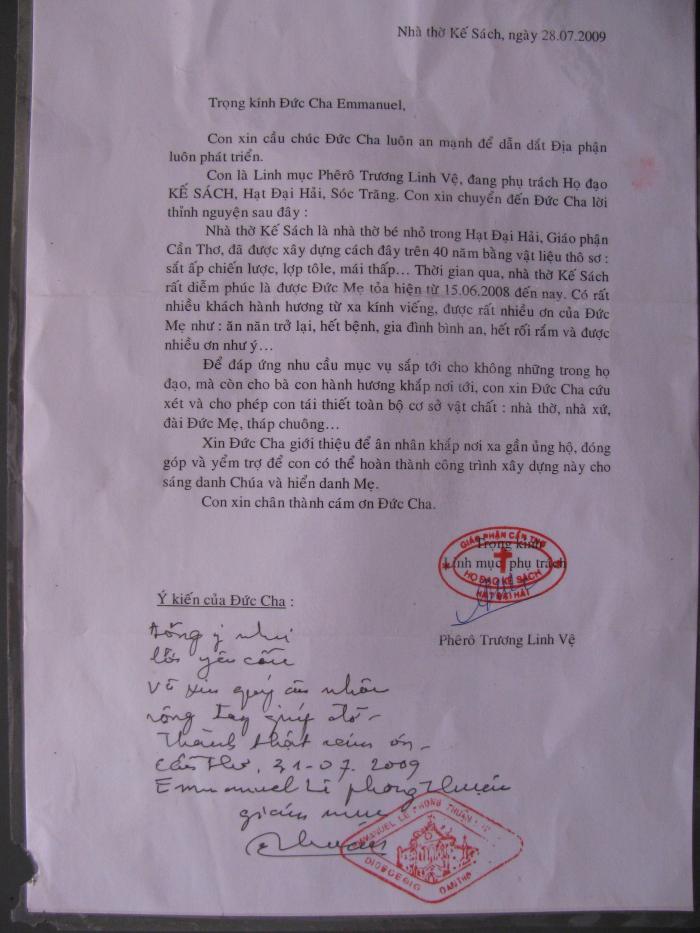 Nhà thờ Kế Sách, ngày 28.07.2009
Trọng kính Đức Cha Emmanuel,
Con xin cầu chúc Đức Cha luôn an mạnh để dẫn dắt Địa phận
luôn phát triển.
Con là Linh mục Phêrô Trương Linh Vệ, đang phụ trách Họ đạo
KẾ SÁCH, Hạt Đại Hải, Sóc Trăng. Con xin chuyển đến Đức Cha lời
thỉnh nguyện sau đây :
Nhà thờ Kế Sách là nhà thờ bé nhỏ trong Hạt Đại Hải, Giáo phận
Cần Thơ, đã được xây dựng cách đây trên 40 năm bằng vật liệu thô sơ :
sắt ấp chiến lược, lợp tôle, mái thấp... Thời gian qua, nhà thờ Kế Sách
rất diễm phúc là được Đức Mẹ tỏa hiện từ 15.06.2008 đến nay. Có rất
nhiều khách hành hương từ xa kính viếng, được rất nhiều ơn của Đức
Mẹ như : ăn năn trở lại, hết bệnh, gia đình bình an, hết rối rắm và được
nhiều ơn như ý...
Để đáp ứng nhu cầu mục vụ sắp tới cho không những trong họ
đạo, mà còn cho bà con hành hương khắp nơi tới, con xin Đức Cha cứu
xét và cho phép con tái thiết toàn bộ cơ sở vật chất : nhà thờ, nhà xứ,
đài Đức Mẹ, tháp chuông...
Xin Đức Cha giới thiệu để ân nhân khắp nơi xa gần ủng hộ, đóng
góp và yểm trợ để con có thể hoàn thành công trình xây dựng này cho
sáng danh Chúa và hiển danh Mẹ.
Con xin chân thành cám ơn Đức Cha.
GIÁO PHẬN CẦN THƠ
Trọng kính
Linh mục phụ trách
HỌ ĐẠO KẾ SÁCH
HẠT ĐẠI HẢI
Phêrô Trương Linh Vệ
Ý kiến của Đức Cha :
Đồng ý như
lời yêu cầu
và xin quý ân nhân
rộng tay giúp đỡ -
Thành thật cám ơn -
Cần Thơ, 31-07. 2009
Emmanuel Lê Phong Thuận
giám mục
EMMANUEL LÊ PHONG THUẬN
DIOECESIS CANTHO